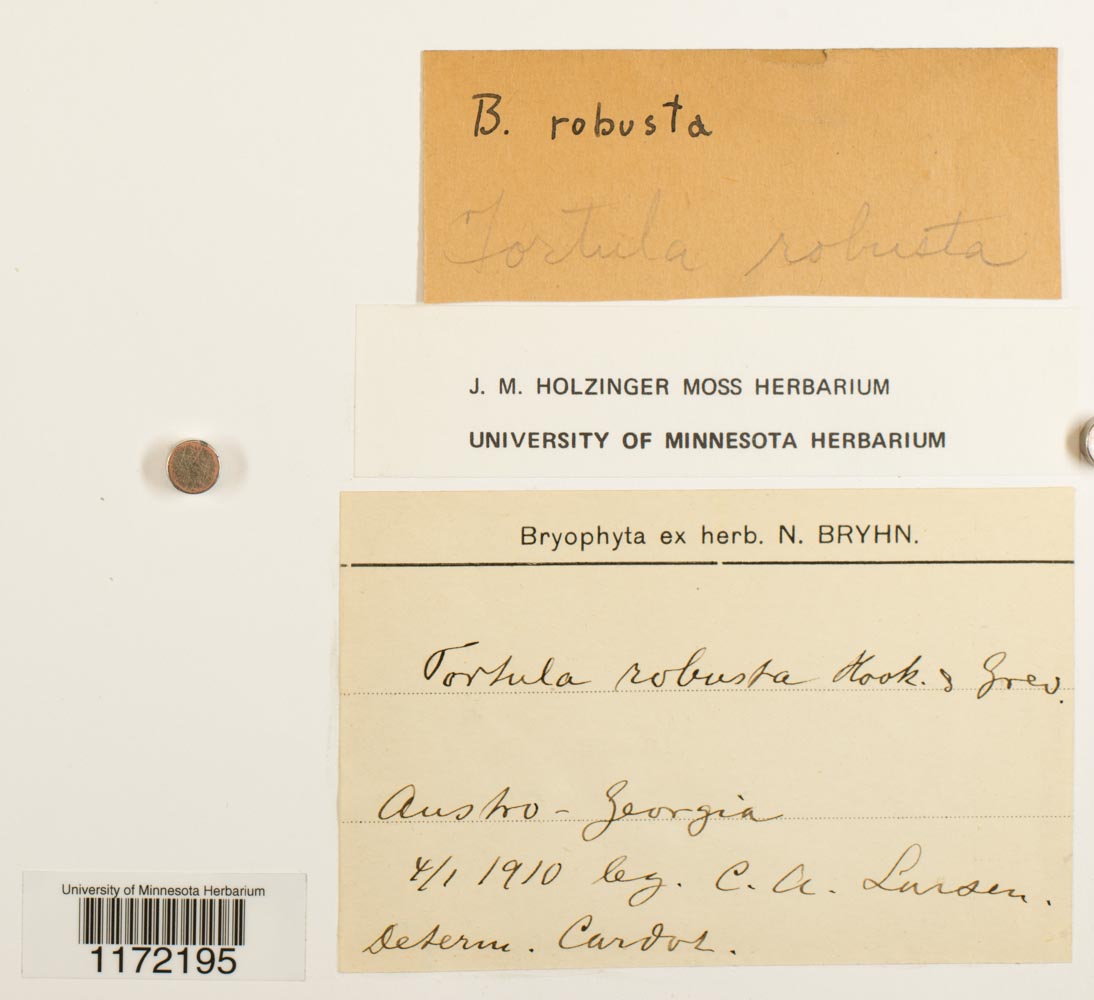 B. robusta
Tortula robusta
J. M. HOLZINGER MOSS HERBARIUM
UNIVERSITY OF MINNESOTA HERBARIUM
Bryophyta ex herb. N. BRYHN.
Tortula robusta Hook. & Grev.
Austro - Georgia
4/1 1910 leg. C. A. Larsen.
Determ. Cardot.
University of Minnesota Herbarium
1172195